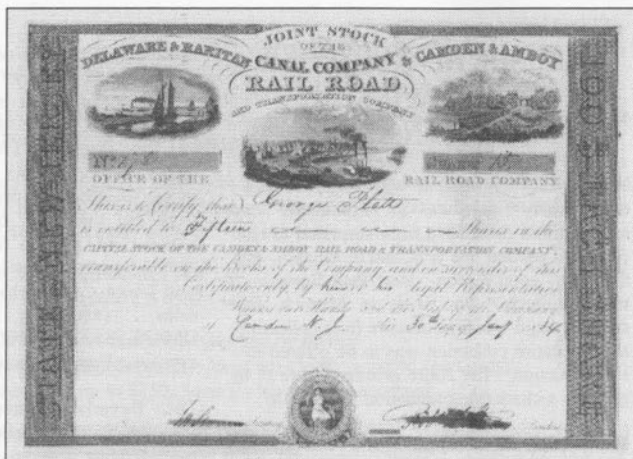 JOINT STOCK
OF THE
DELAWARE & RARITAN CANAL COMPANY & CAMDEN & AMBOY
RAIL ROAD
AND TRANSPORTATION COMPANY
No.
SHARES 15
OFFICE OF THE RAIL ROAD COMPANY
This is to Certify that George Platt
is entitled to Fifteen Shares in the
CAPITAL STOCK OF THE CAMDEN & AMBOY RAIL ROAD & TRANSPORTATION COMPANY,
transferable on the Books of the Company and on surrender of this
Certificate only by him or his legal Representative
Witness our Hands and the Seal of the Company
at Camden N. J. this 30th day of Jany 1834
STATE OF NEW JERSEY
100 DOLLARS EACH SHARE